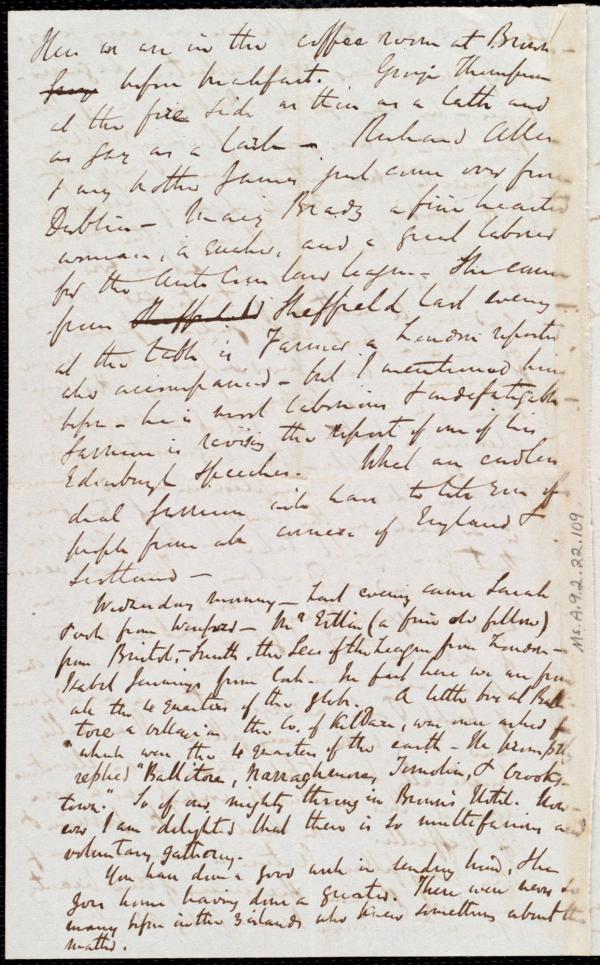 Here we are in the coffee room at Brown-
before breakfast. George Thompson
at the fire side as thin as a lath and
as gay as a lark - Richard Allen
& my brother James just come over from
Dublin - Mary Brady a fine hearted
woman, a Quaker, and a great laborer
for the Anti Corn law league - She came
from Sheffield last evening -
at the table is Farmer a London reporter
who accompanied - but I mentioned him
before - he is most laborious & indefatigable -
Garrison is revising the report of one of his
Edinburgh Speeches. What an endless
deal Garrison will have to
people from all corners of England &
Scotland -
Wednesday morning - Last evening came Sarah
from Wexford - Mr Estlin (a fine old fellow)
from Bristol, - Smith, the Sec of the League from London -
Isabel Jennings from Cork. In fact here we are from
all the 4 quarters of the globe. A little boy at Ball
tore a village in the Co. of Kildare, was once asked
"which were the 4 quarters of the earth - He promptly
replied "Ballitore, Narraghmore, Timolin, & Crooks-
town." So of our mighty throng in Brown's Hotel. How-
ever I am delighted that there is so multifarious and
voluntary gathering.
You have done a good work in sending him, He
goes home having done a greater. There were never so
many before in the 3 islands who knew something about the
matter.
Ms. A. 9. 2. 22. 109